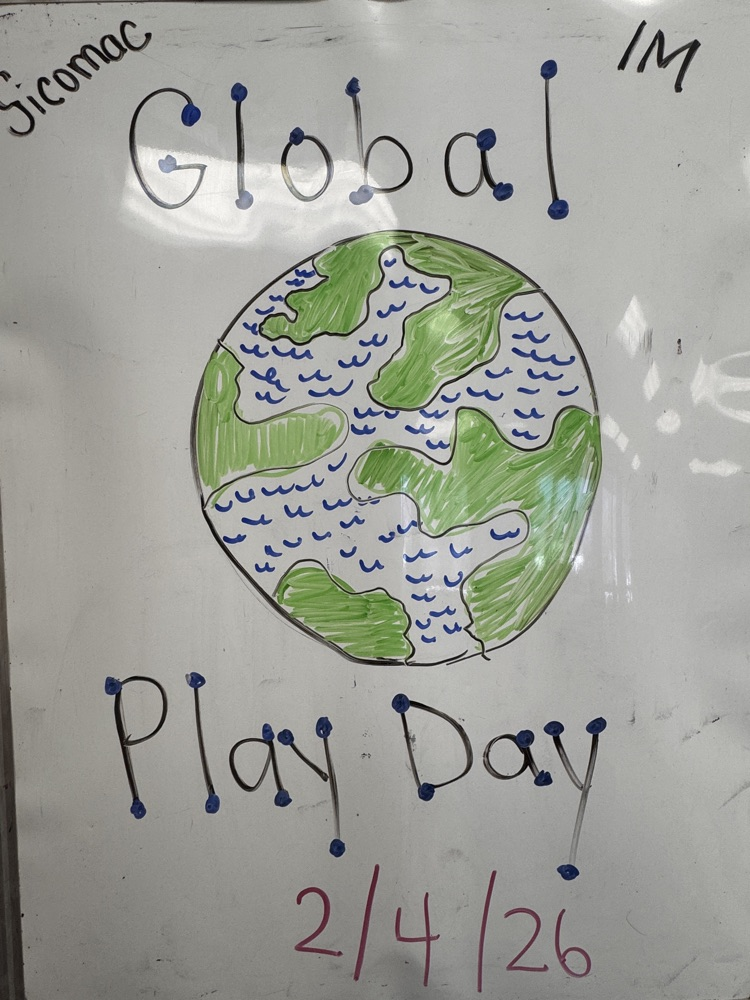 Sicomac
1M
Global
Play Day
2/4/26